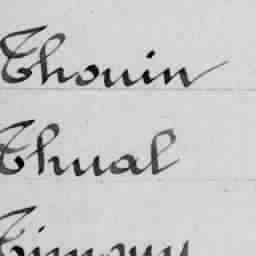 Thouin
Thual